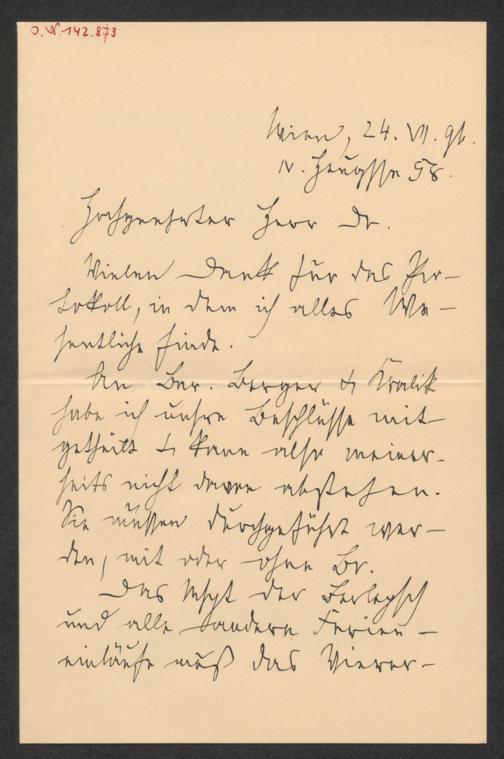 J.N.142.873
Wien, 24. VI. 96.
IV. Heugasse 58.
Hochgeehrter Herr Dr.
Vielen Dank für das Pro-
tokoll, in dem ich alles We-
sentliche finde.
An Bar. Berger & Kralik
habe ich unsre Beschlüsse mit-
getheilt & kann also meiner-
seits nicht davon abstehen.
Sie müssen durchgeführt wer-
den, mit oder ohne Br.
Das Mspt der Berlepsch
und alle andern Ferien-
einläufe muß das Vierer-